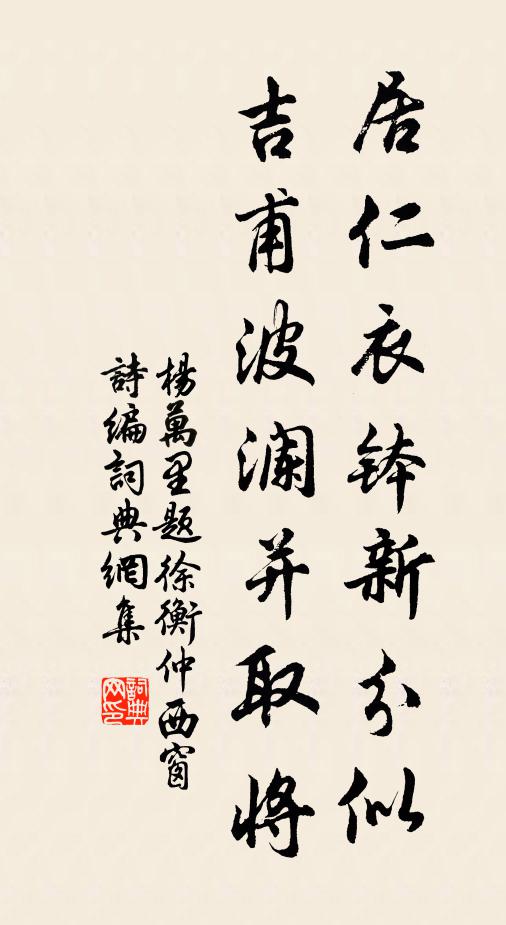 居仁衣钵新分似
吉甫波澜并取将
楊萬里题徐衡仲西窗
詩编詞典網集
詞典
网印